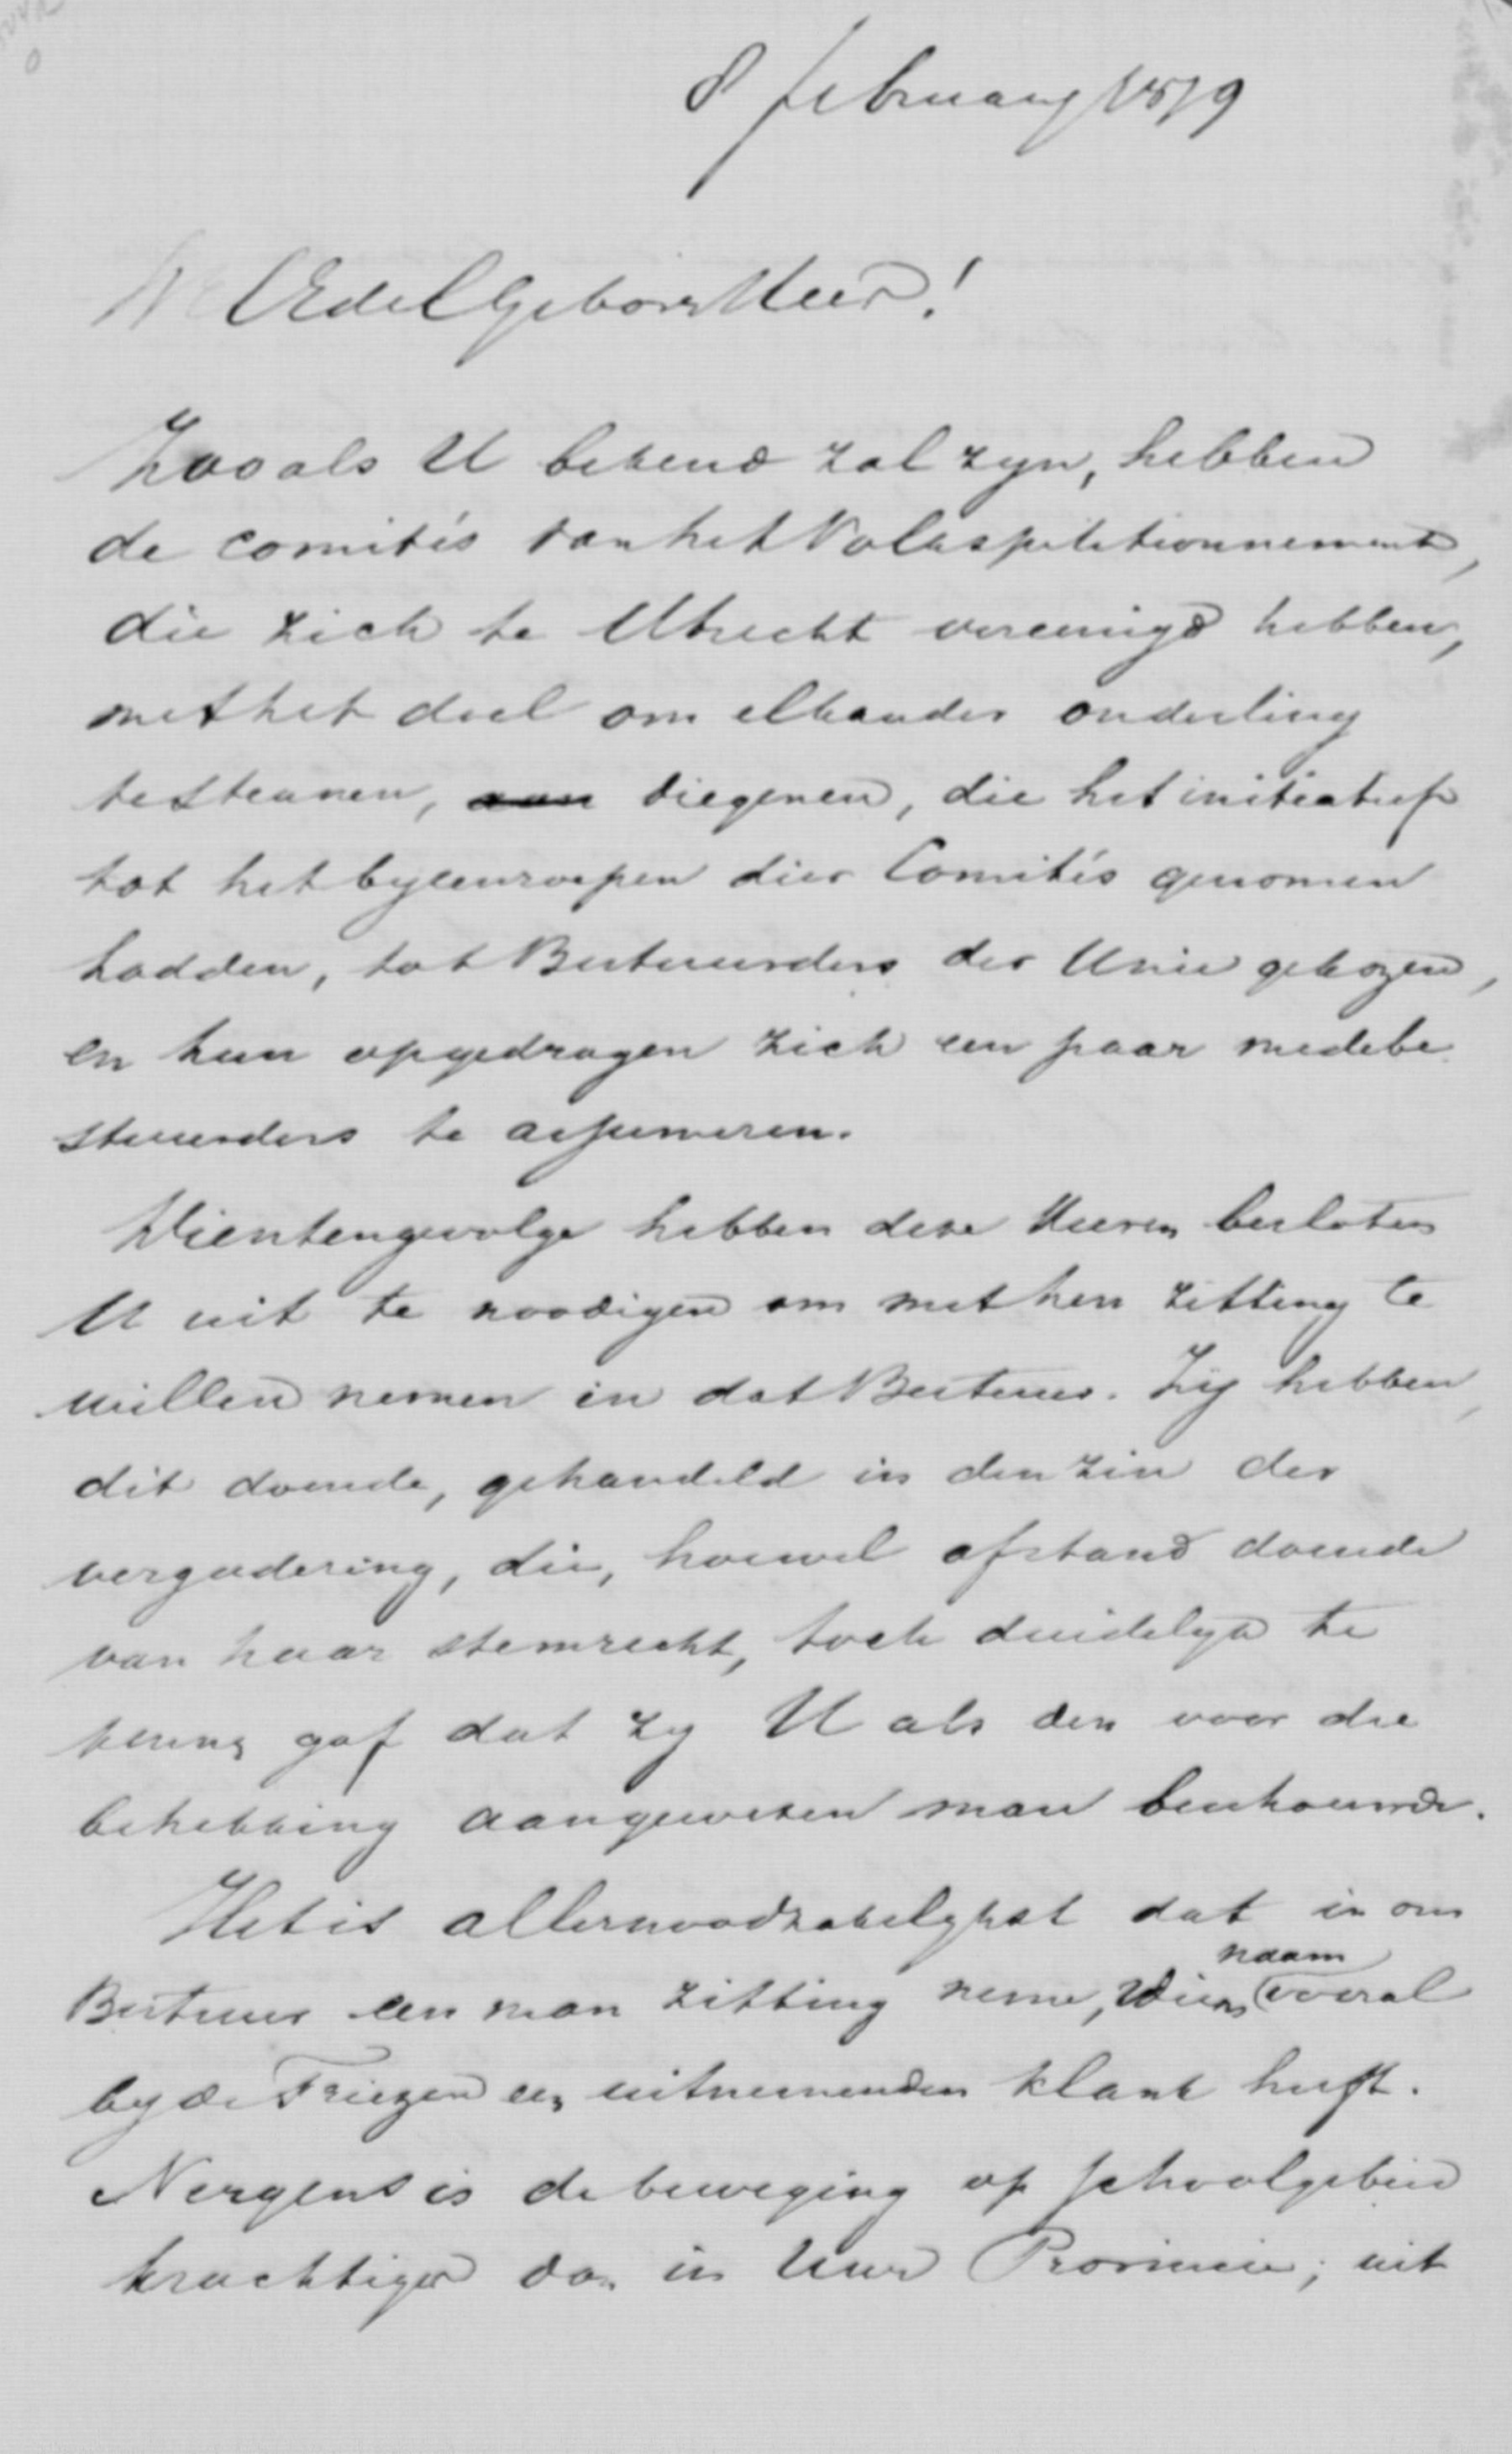 8 february 1879
WelEdelGeboren Heer!
Zooals U bekend zal zyn, hebben
de comités van het Volkspetitionnement,
die zich te Utrecht vereenigd hebben,
met het doel om elkander onderling
te steunen, aan diegenen, die het initiatief
tot het byeenroepen dier Comités genomen
hadden, tot Bestuurders der Unie gekozen,
en hun opgedragen zich een paar medebe
stuurders te assumeren.
Dientengevolge hebben deze Heeren besloten
U uit te noodigen om met hen zitting te
willen nemen in dat Bestuur. Zy hebben,
dit doende, gehandeld in den zin der
vergadering, die, hoewel afstand doende
van haar stemrecht, toch duidelyk te
kennen gaf dat zy U als den voor die
betrekking aangewezen man beschouwde.
Het is allernoodzakelykst dat in ons
Bestuur een man zitting neme, wiens naam vooral
by de Friezen een uitnemenden klank heeft.
Nergens is de beweging op schoolgebied
krachtiger dan in Uwe Provincie; uit